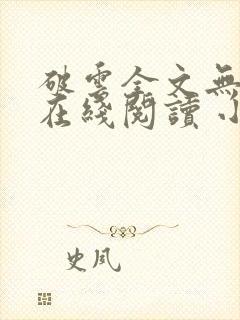 破雲全文無
在綫閱讀 小
史夙